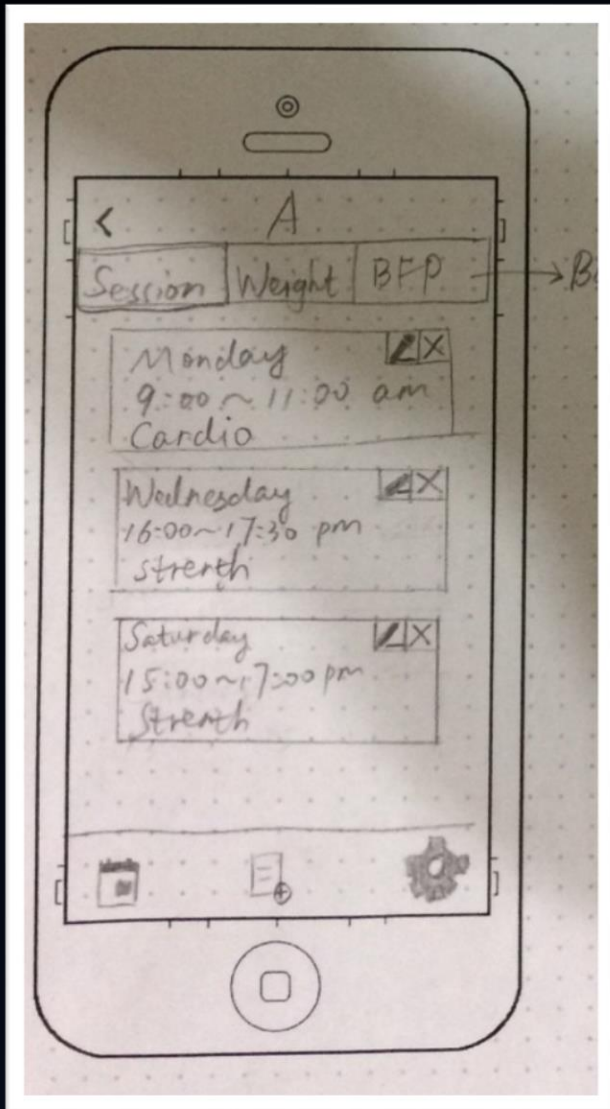 < A
Session Weight BFP → B
Monday
9:00~11:00 am
Cardio
Wednesday
16:00~17:30 pm
strenth
Saturday
15:00~17:00 pm
Strenth